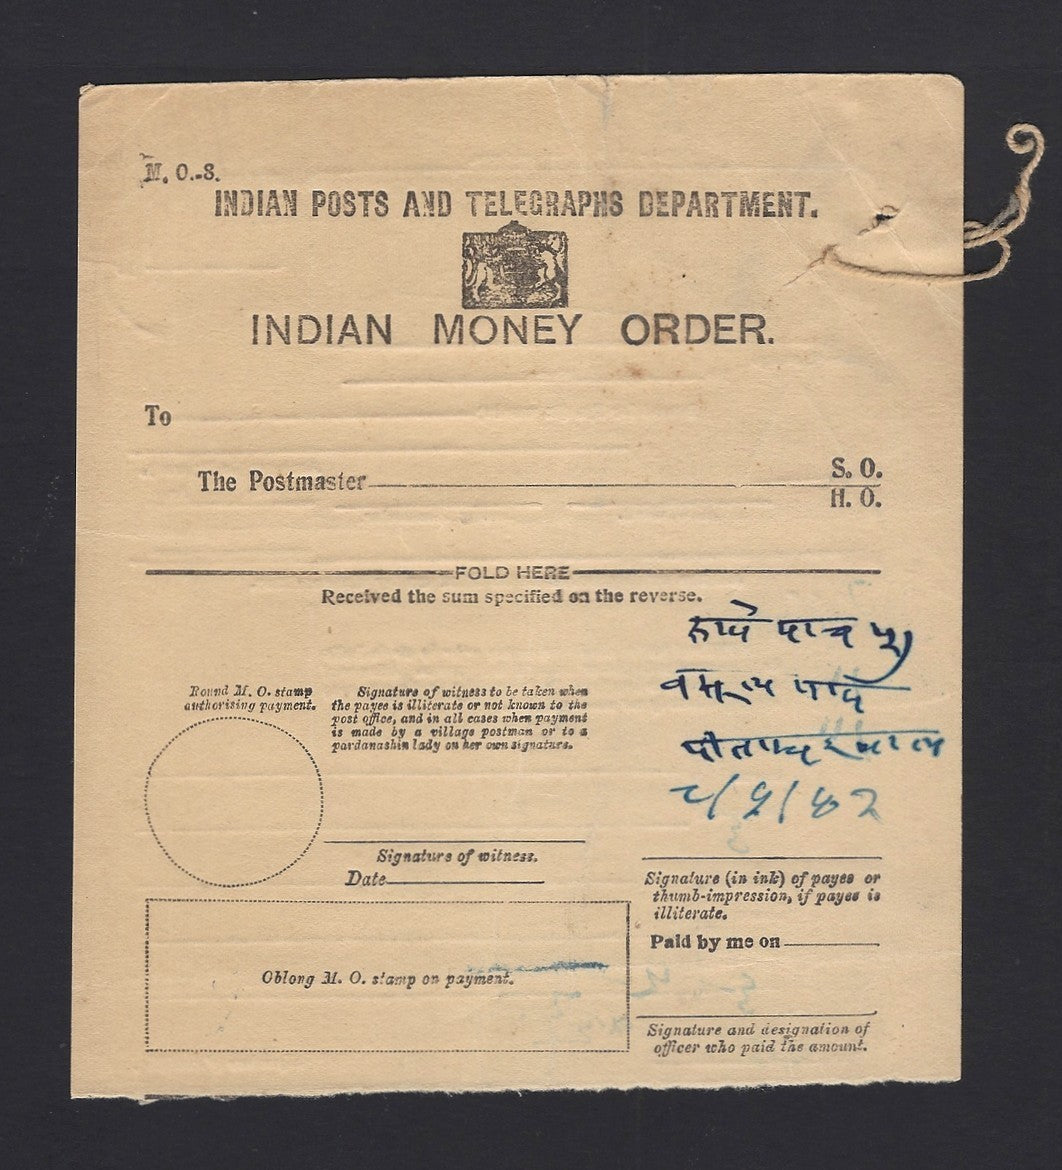 M. O.-8.
INDIAN POSTS AND TELEGRAPHS DEPARTMENT.
INDIAN MONEY ORDER.
To
The Postmaster S. O.
H. O.
FOLD HERE
Received the sum specified on the reverse.
रुपये पाच ५)
Round M. O. stamp
authorising payment.
Signature of witness to be taken when
the payee is illiterate or not known to the
post office, and in all cases when payment
is made by a village postman or to a
pardanashin lady on her own signature.
Signature of witness.
Date
Signature (in ink) of payee or
thumb-impression, if payee is
illiterate.
Paid by me on
Oblong M. O. stamp on payment.
Signature and designation of
officer who paid the amount.